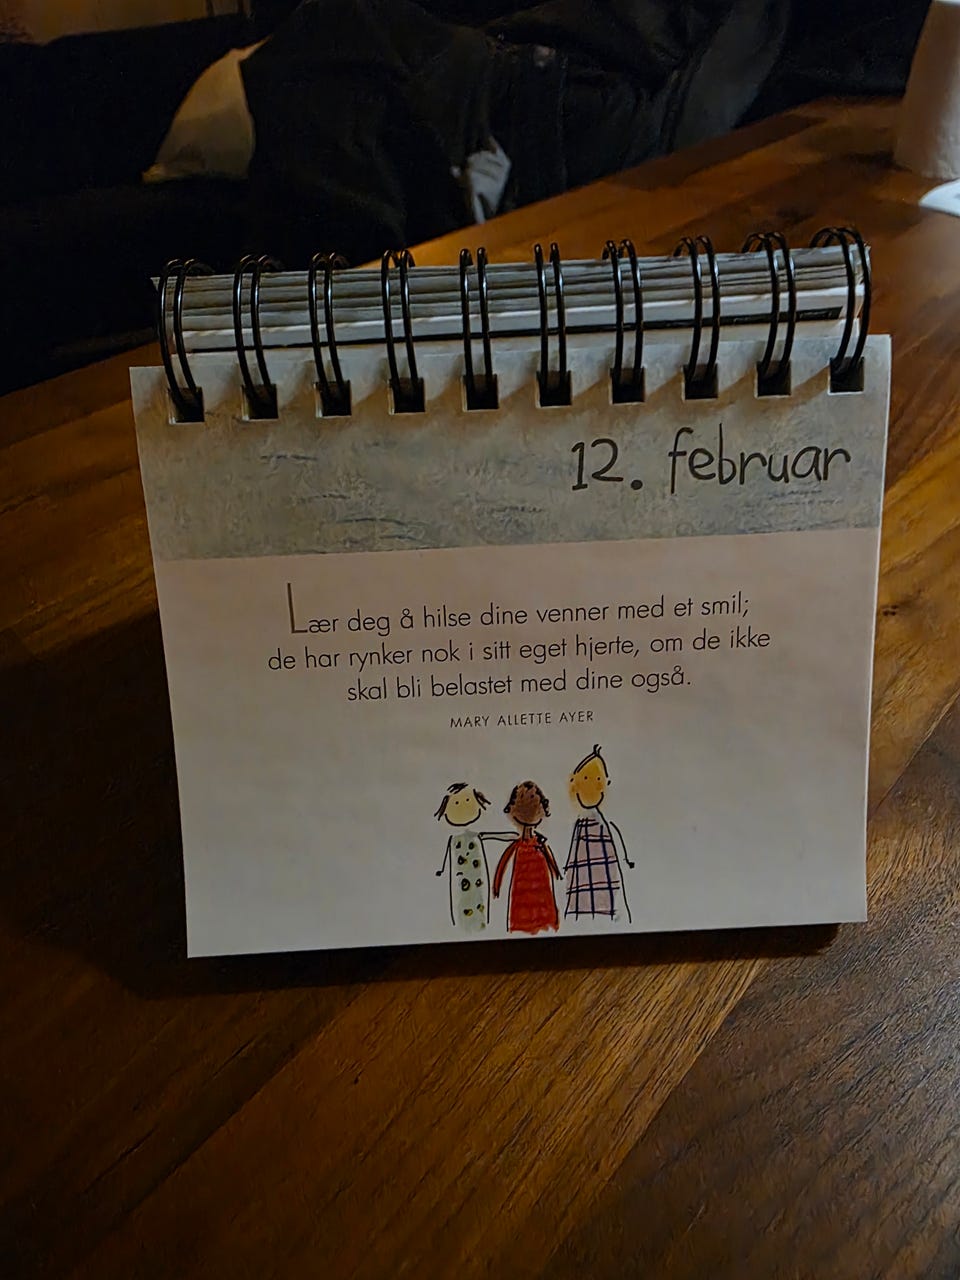 12. februar
Lær deg å hilse dine venner med et smil;
de har rynker nok i sitt eget hjerte, om de ikke
skal bli belastet med dine også.
MARY ALLETTE AYER